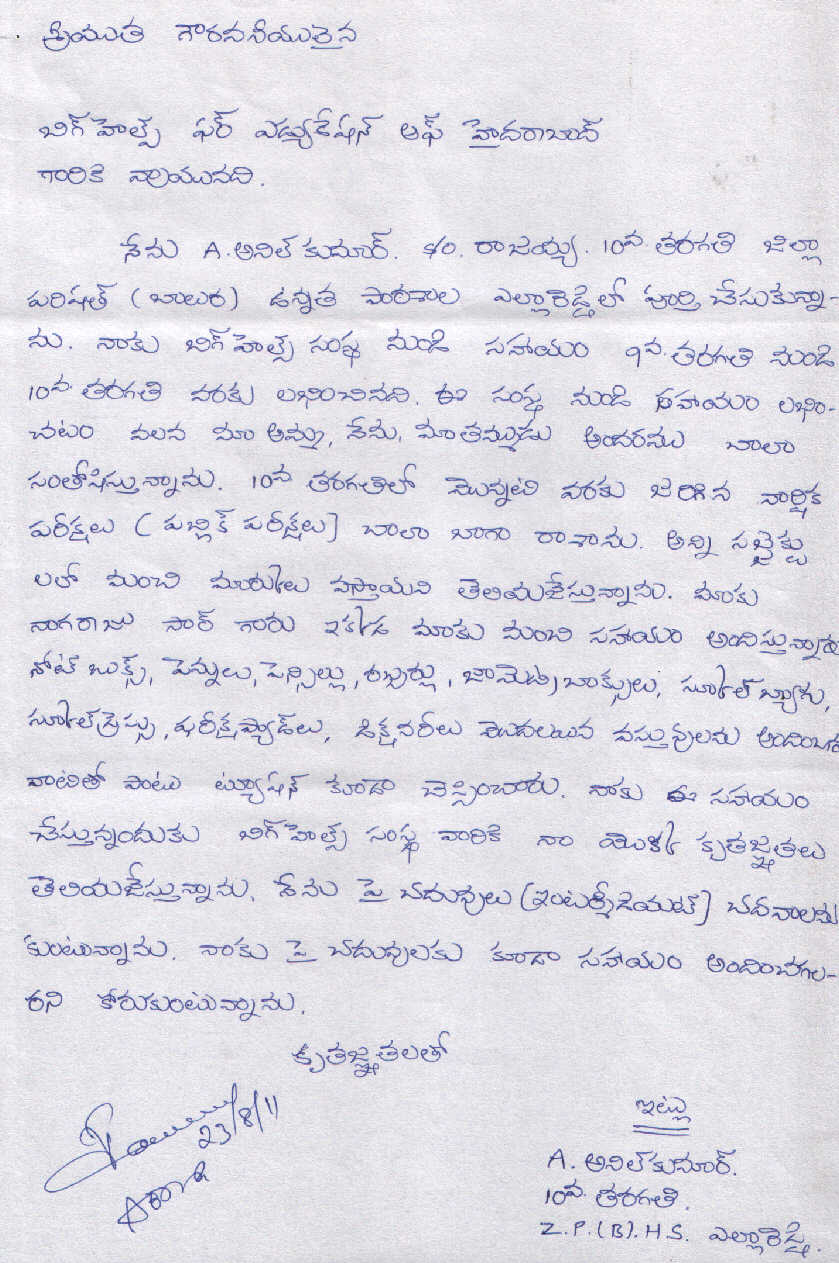 శ్రీయుత గౌరవనీయులైన
బిగ్ హెల్ప్ ఫర్ ఎడ్యుకేషన్ ఆఫ్ హైదరాబాద్
గారికి వ్రాయునది.
నేను A. అనిల్ కుమార్. S/o. రాజయ్య. 10వ తరగతి జిల్లా
పరిషత్ (బాలుర) ఉన్నత పాఠశాల ఎల్లారెడ్డిలో పూర్తి చేసుకున్నా
ను. నాకు బిగ్ హెల్ప్ సంస్థ నుండి సహాయం 9వ తరగతి నుండి
10వ తరగతి వరకు లభించినది. ఈ సంస్థ నుండి సహాయం లభిం-
చటం వలన మా అమ్మ, నేను, మా తమ్ముడు అందరము చాలా
సంతోషిస్తున్నాను. 10వ తరగతిలో మొన్నటి వరకు జరిగిన వార్షిక
పరీక్షలు (పబ్లిక్ పరీక్షలు) చాలా బాగా రాశాను. అన్ని సబ్జెక్టు
లలో మంచి మార్కులు వస్తాయని తెలియజేస్తున్నాను. మాకు
నాగరాజు సార్ గారు ఇక్కడ మాకు మంచి సహాయం అందిస్తున్నారు
నోట్ బుక్స్, పెన్నులు, పెన్సిల్లు, రబ్బర్లు, జామెట్రి బాక్సులు, స్కూల్ బ్యాగు,
స్కూల్ డ్రెస్సు, పరీక్ష ప్యాడ్‌లు, డిక్షనరీలు మొదలయిన వస్తువులను అందించారు
వాటితో పాటు ట్యూషన్ కూడా చెప్పించారు. నాకు ఈ సహాయం
చేస్తున్నందుకు బిగ్ హెల్ప్ సంస్థ వారికి నా యొక్క కృతజ్ఞతలు
తెలియజేస్తున్నాను. నేను పై చదువులు (ఇంటర్మీడియట్) చదవాలను
కుంటున్నాను. నాకు పై చదువులకు కూడా సహాయం అందించగల-
రని కోరుకుంటున్నాను.
కృతజ్ఞతలతో
23/8/11
ఇట్లు
A. అనిల్ కుమార్.
10వ తరగతి.
Z.P.(B).H.S. ఎల్లారెడ్డి.